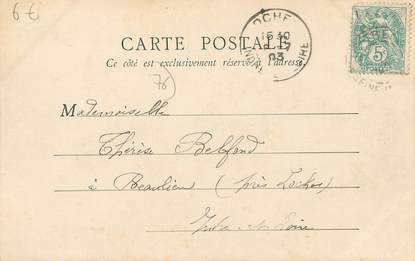 6 €
CARTE POSTALE
Ce côté est exclusivement réservé à l'adresse
76
Mademoiselle
Thérèse
à Beaulieu (près Loches)
Indre-et-Loire
03
5